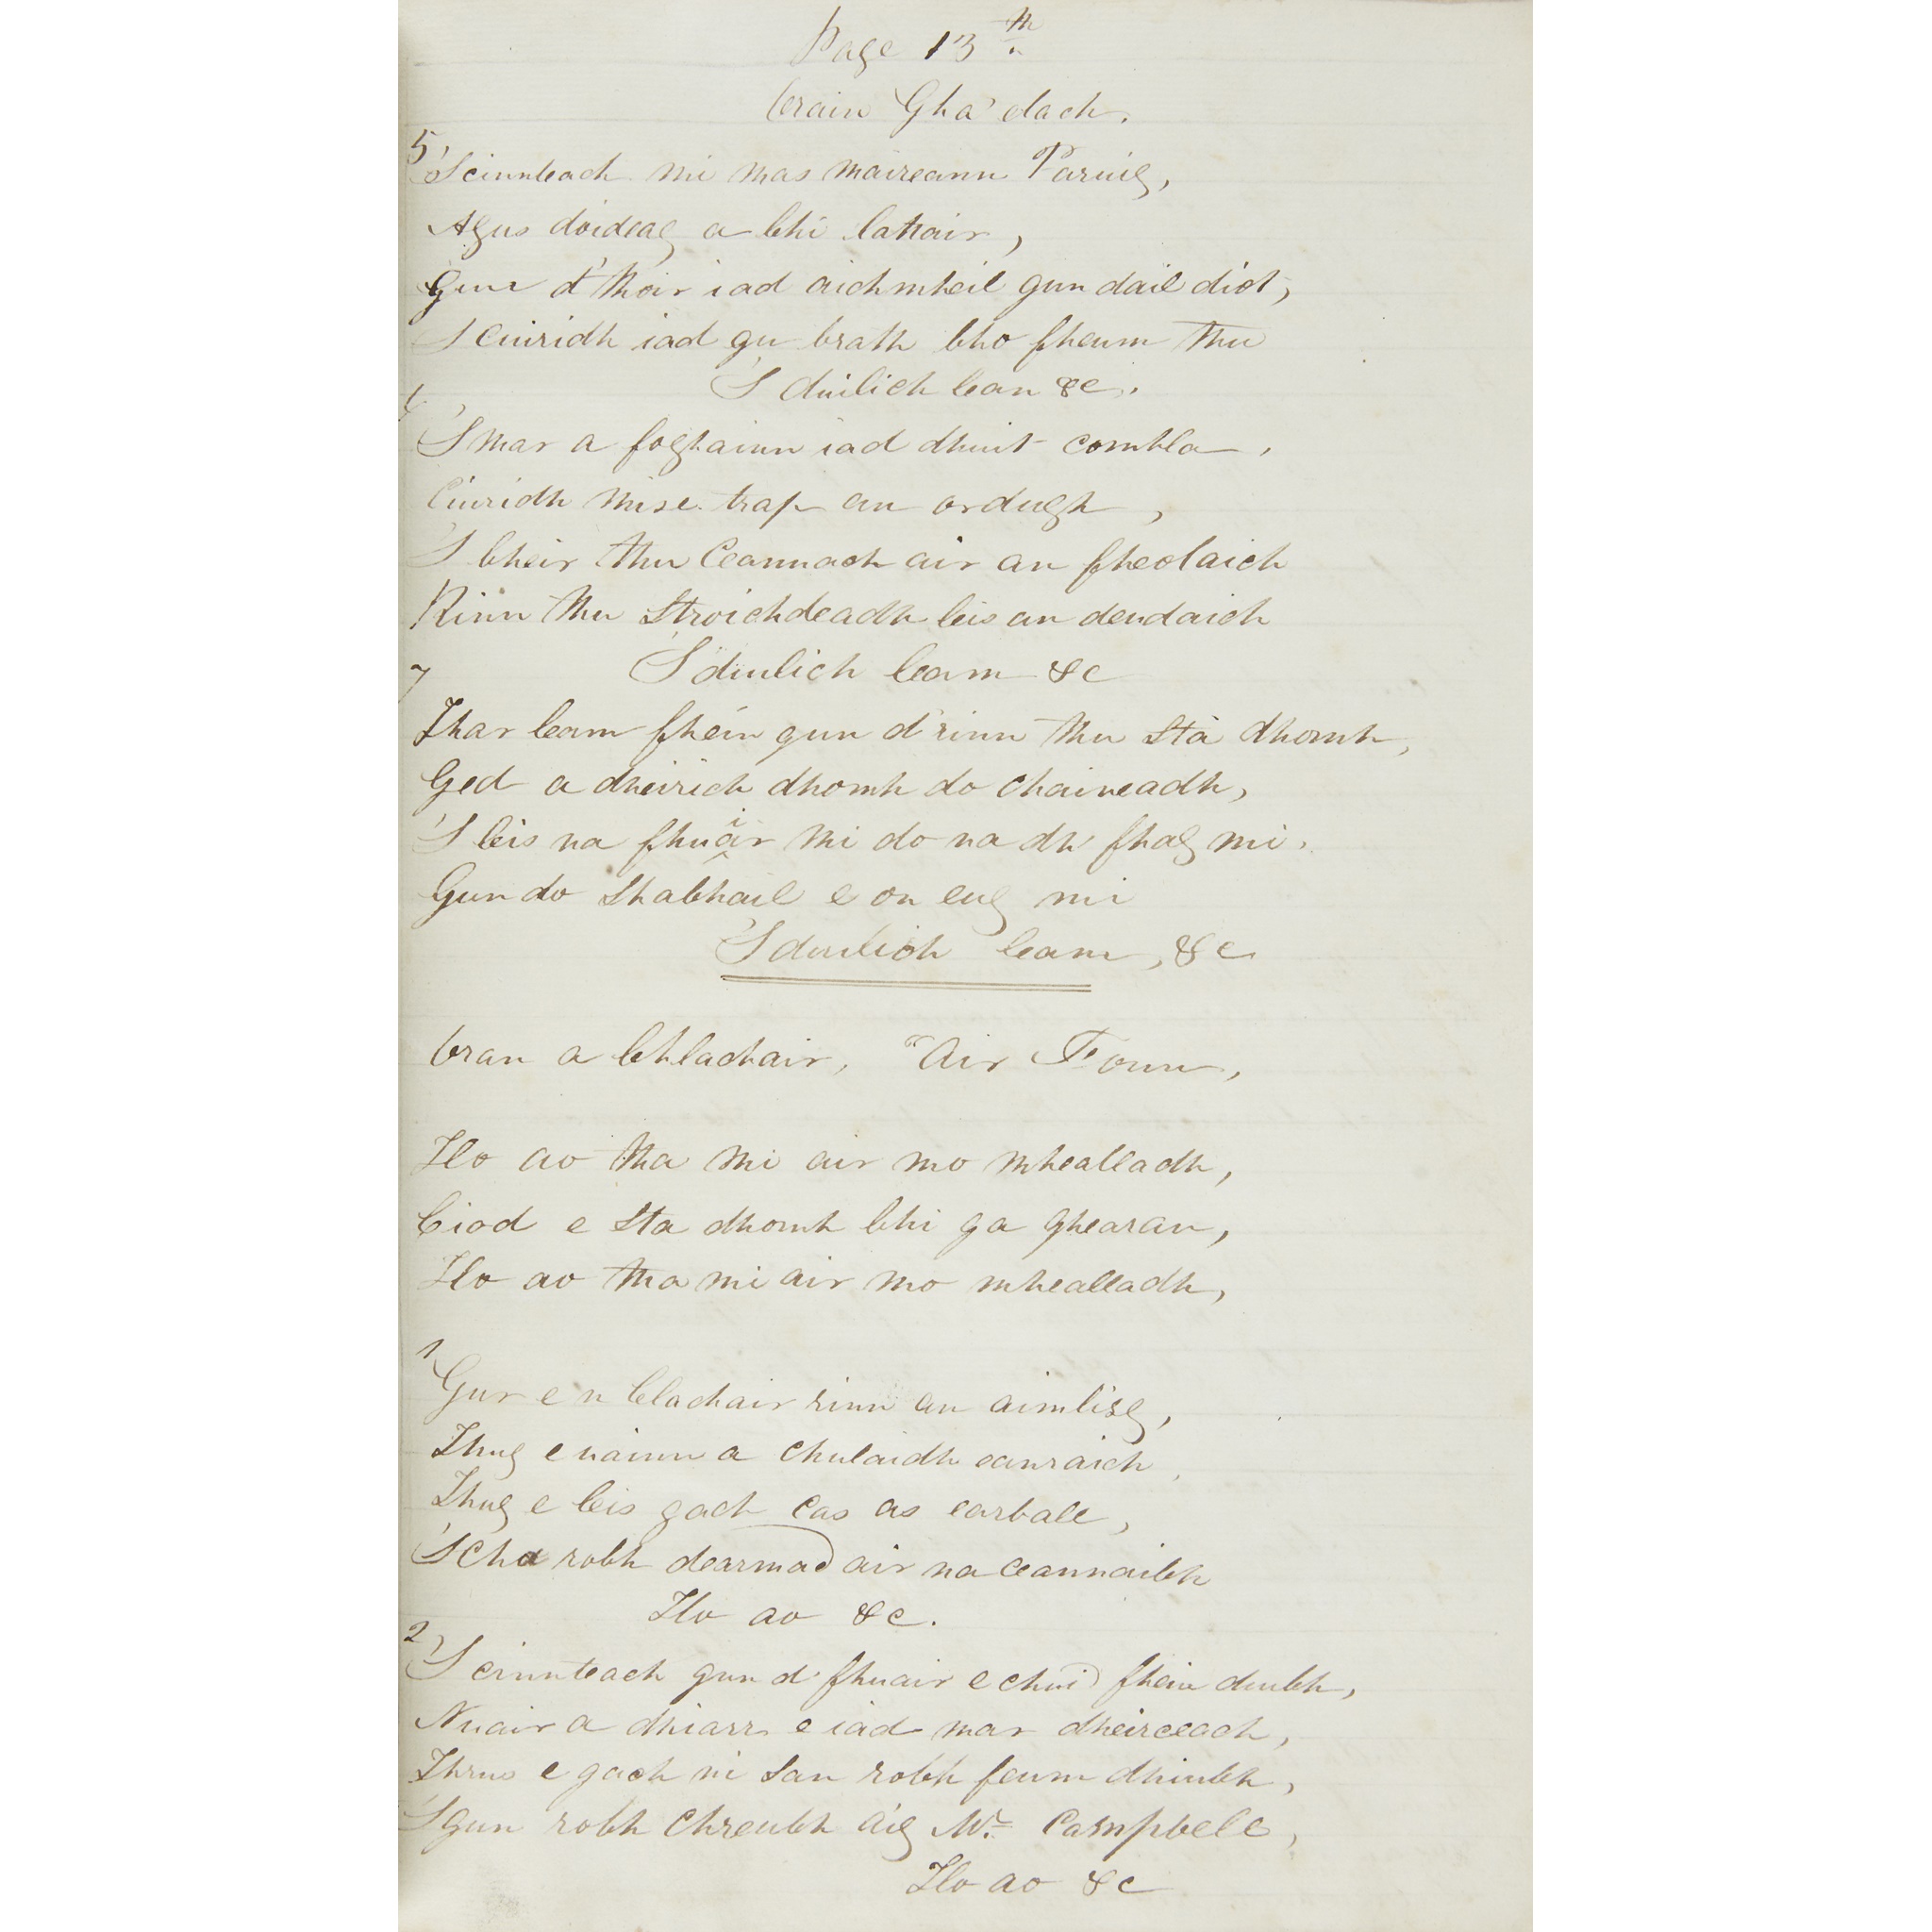 Page 13th
Orain Gha'dach.
5
'S cinnteach mi mas maireann Paruig,
Agus doideag a bhi lathair,
Gun d' thoir iad aichmheil gun dail diot,
S cuiridh iad gu brath bho fheum thu
'S duilich lean &c.
6
'S mar a foghainn iad dhuit combla,
Cuiridh mise trap an ordugh,
'S bheir thu Ceannach air an fheolaich
Rinn thu stroichdeadh leis an deudaich
'S duilich leam &c
7
Thar leam fhéin gun d'rinn thu stà dhomh,
Ged a dheirich dhomh do chaineadh,
'S leis na fhuair mi do na dh' fhag mi,
Gun do shabhail e on eug mi
'S duilich leam, &c
Oran a bhlachair, "Air Fonn,
Ho ao tha mi air mo mhealladh,
Ciod e sta dhomh bhi ga ghearan,
Ho ao tha mi air mo mhealladh,
1
Gur e n blachair rinn an aimlisg,
Thug e uainn a chulaidh eanraich,
Thug e leis gach cas as earball,
'S cha robh dearmad air na ceannaibh
Ho ao &c.
2
'S cinnteach gun d' fhuair e chuid fhein duibh,
Nuair a dhiarr e iad mar dheirceach,
Thrus e gach ni san robh feum dhiubh,
'S gun robh chreubh aig Mr. Campbell,
Ho ao &c